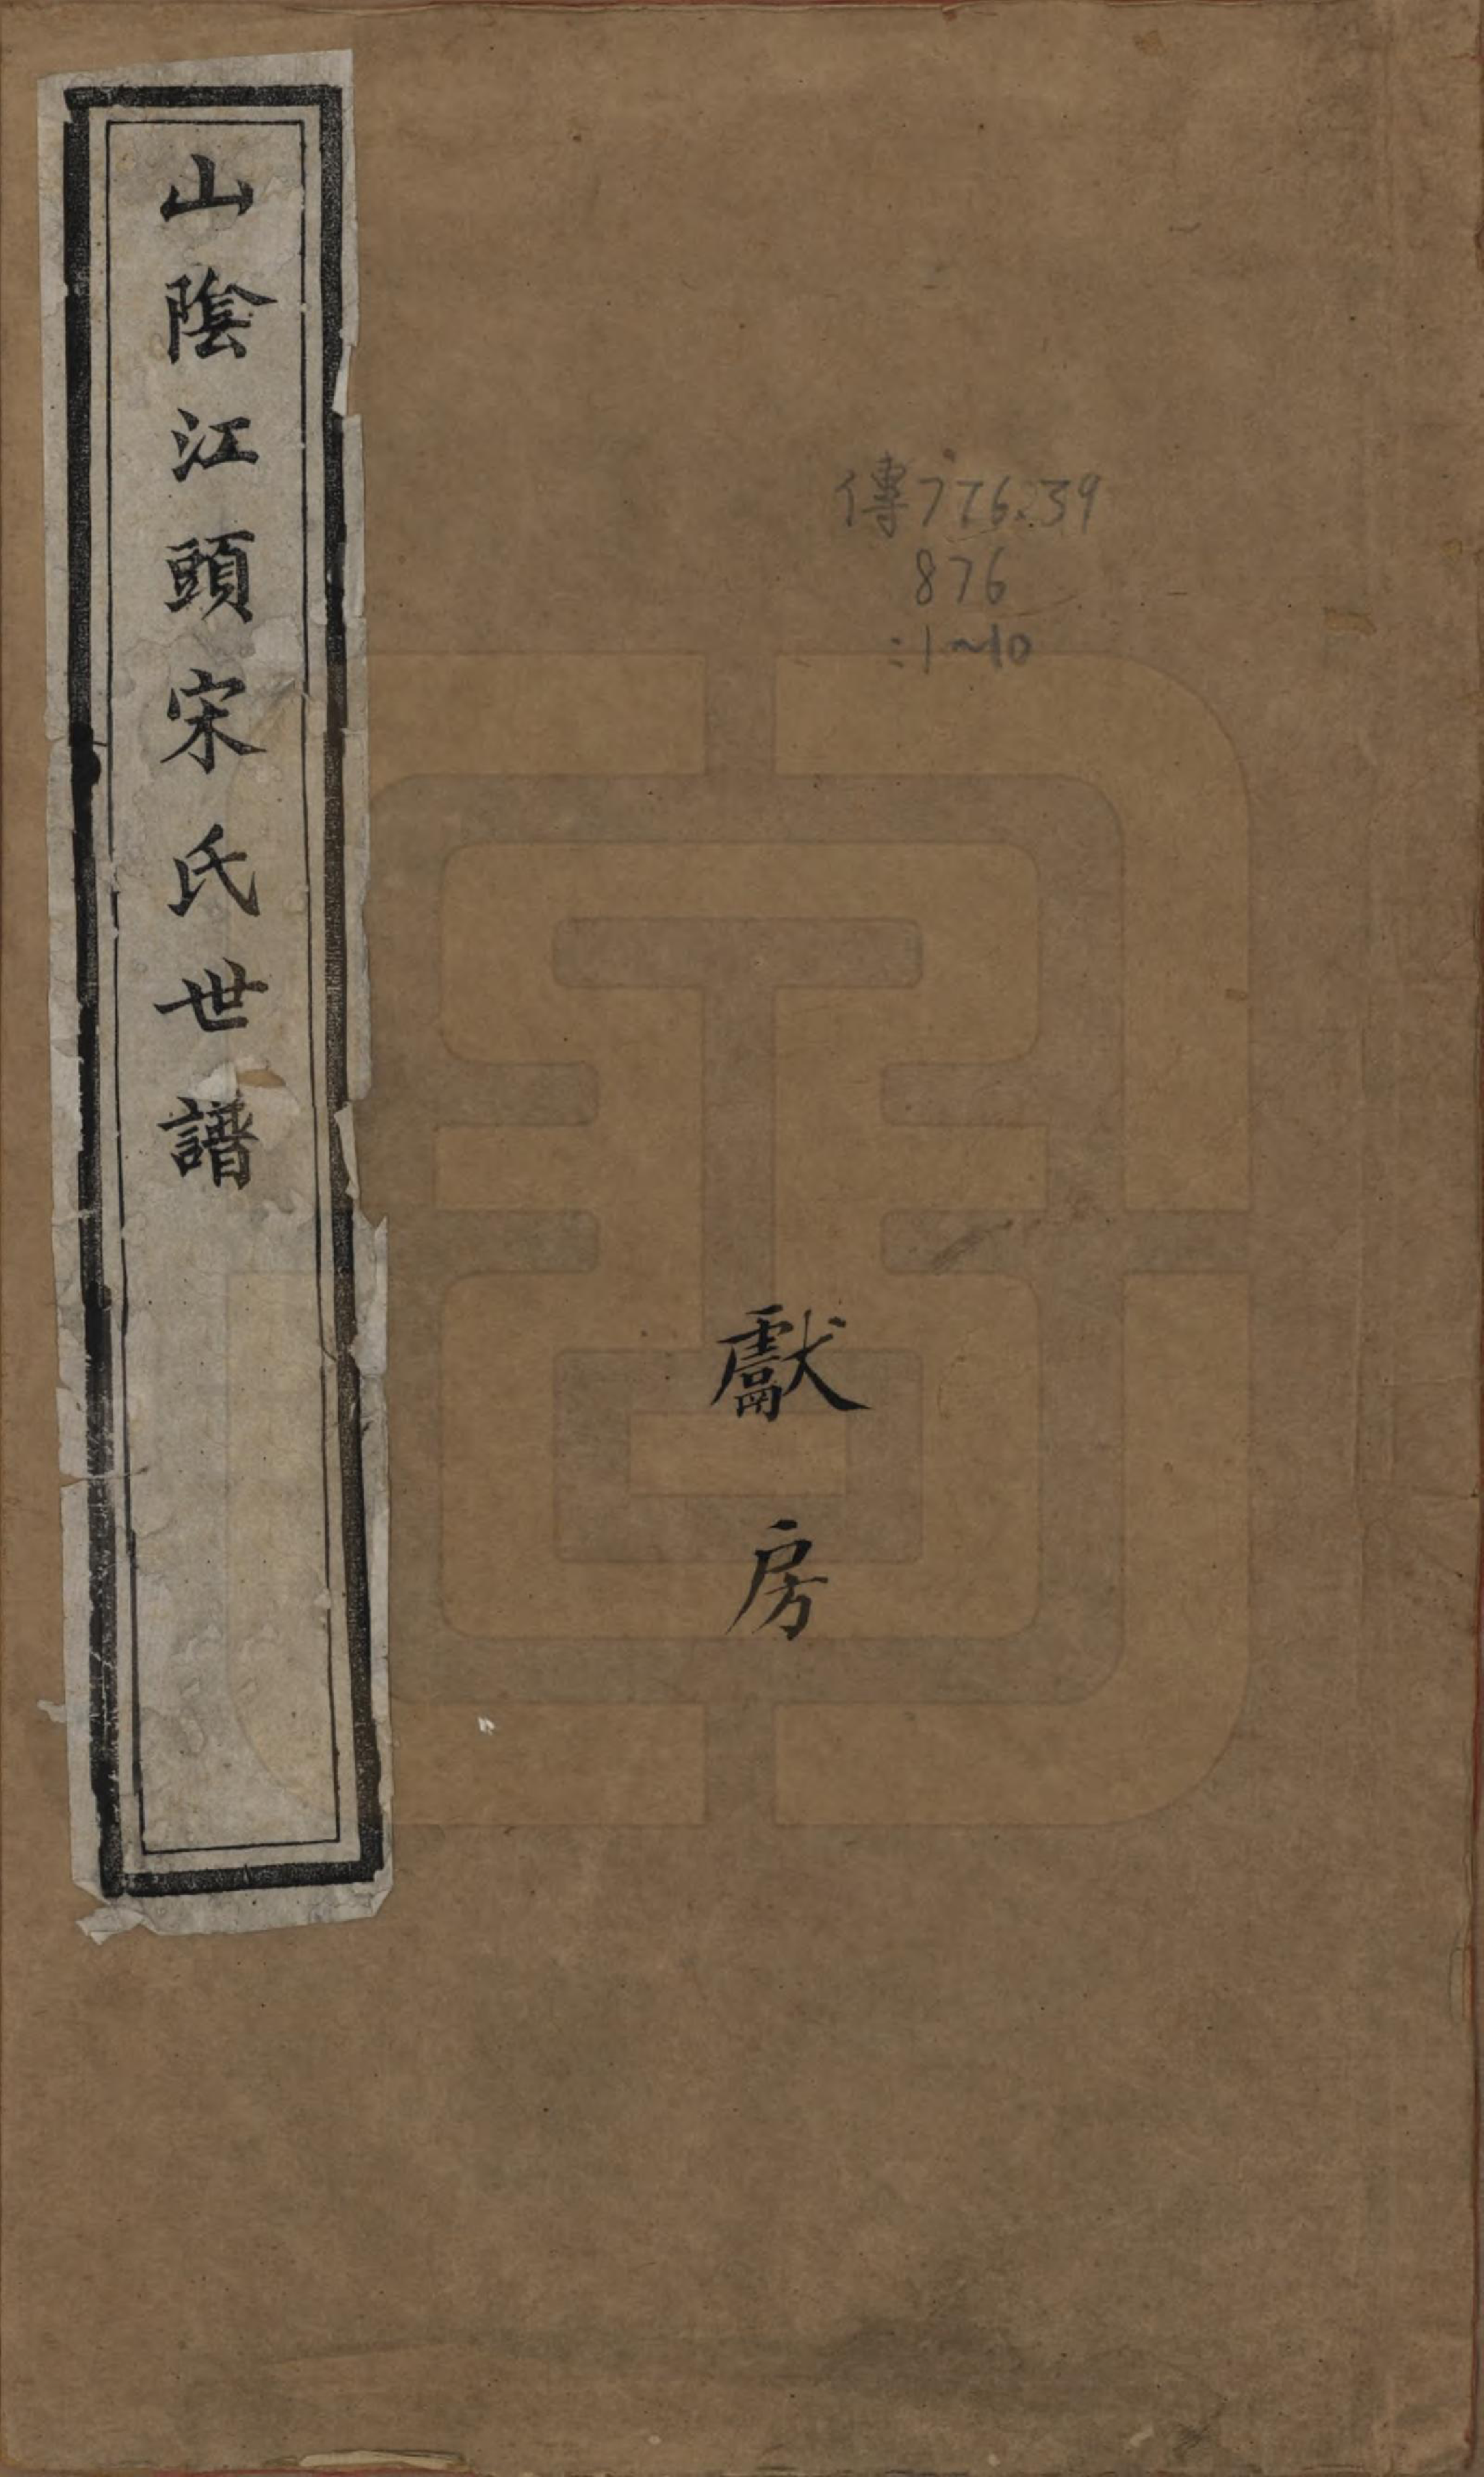 山陰江頭宋氏世譜
傳776.39
876
:1~10
獻房